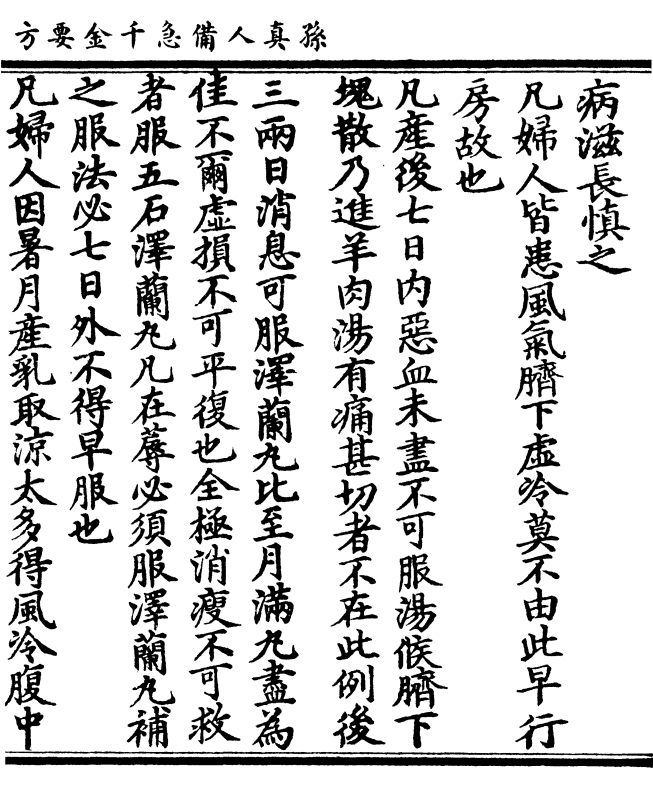 孫真人備急千金要方
病滋長慎之
凡婦人皆患風氣臍下虛冷莫不由此早行
房故也
凡產後七日內惡血未盡不可服湯候臍下
塊散乃進羊肉湯有痛甚切者不在此例後
三兩日消息可服澤蘭丸比至月滿丸盡為
佳不爾虛損不可平復也全極消瘦不可救
者服五石澤蘭丸凡在蓐必須服澤蘭丸補
之服法必七日外不得早服也
凡婦人因暑月產乳取涼太多得風冷腹中